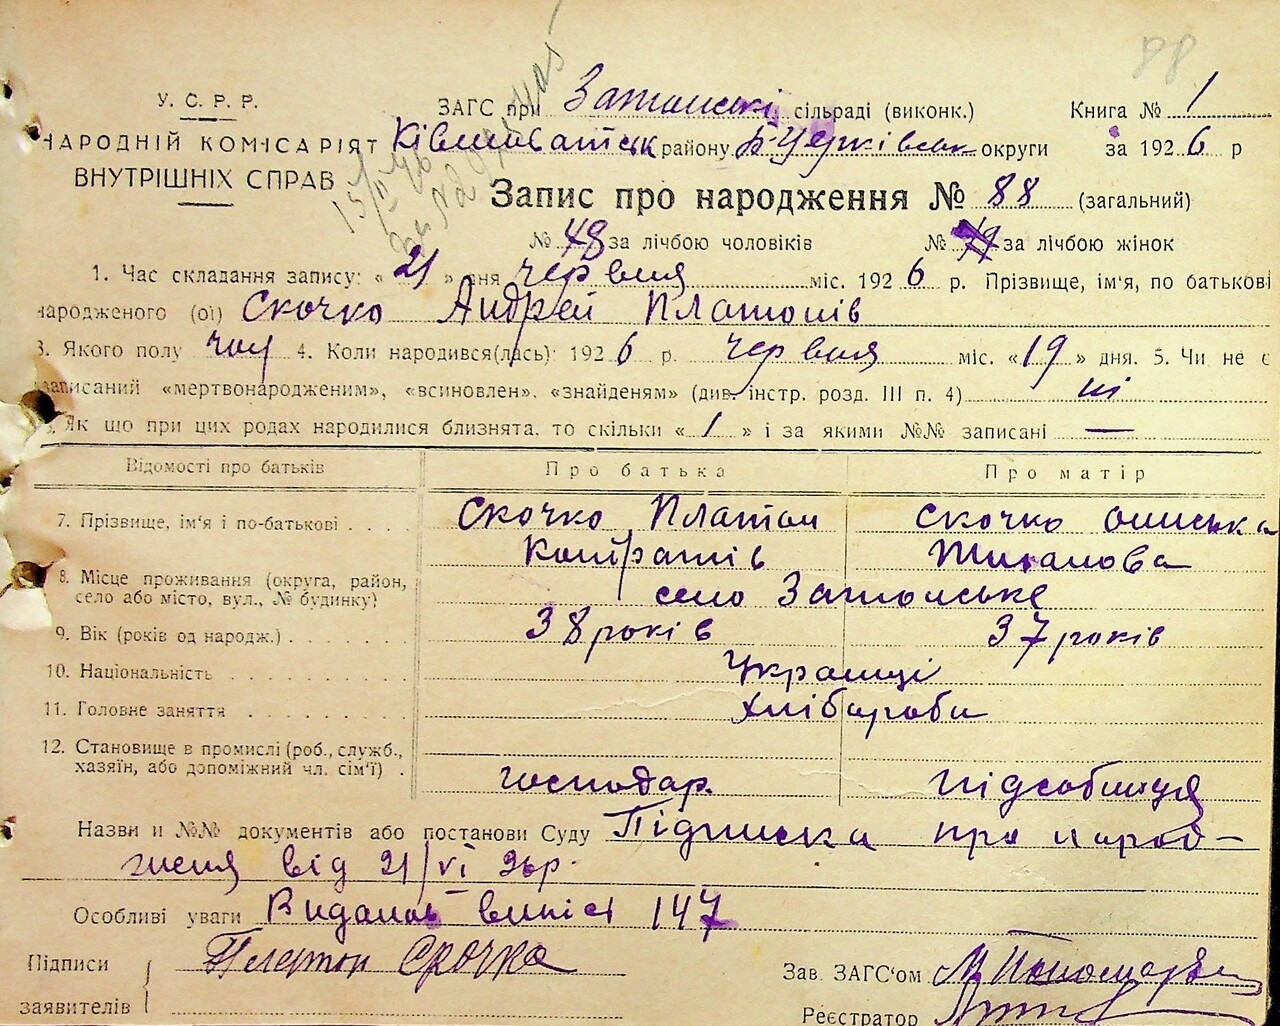 88
У. С. Р. Р.
НАРОДНІЙ КОМІСАРІЯТ
ВНУТРІШНІХ СПРАВ
ЗАГС при Затонській сільраді (виконк.) Книга № 1
району Б-Церківськ округи за 1926 р
Запис про народження № 88 (загальний)
№ 48 за лічбою чоловіків № за лічбою жінок
1. Час складання запису: « 21 » дня червня міс. 1926 р. Прізвище, ім'я, по батькові
народженого (ої) Скочко Андрей Платонів
3. Якого полу чол 4. Коли народився(лась): 1926 р. червня міс. «19» дня. 5. Чи не є
записаний «мертвонародженим», «всиновлен», «знайденям» (див. інстр. розд. III п. 4) ні
Як що при цих родах народилися близнята, то скільки « 1 » і за якими №№ записані —
Відомості про батьків Про батька Про матір
7. Прізвище, ім'я і по-батькові Скочко Платон Скочко Ониська
Контратів
8. Місце проживання (округа, район,
село або місто, вул., № будинку) село Затонське
9. Вік (років од народж.) 38 років 37 років
10. Національність Українці
11. Головне заняття Хлібороби
12. Становище в промислі (роб., служб.,
хазяїн, або допоміжний чл. сім'ї) господар. підсобниця
Назви и №№ документів або постанови Суду Підписка про народ-
женя від 21/VI 26р.
Особливі уваги Видано випис 147
Підписи Платон Скочко
заявителів
Зав. ЗАГС'ом
Реєстратор